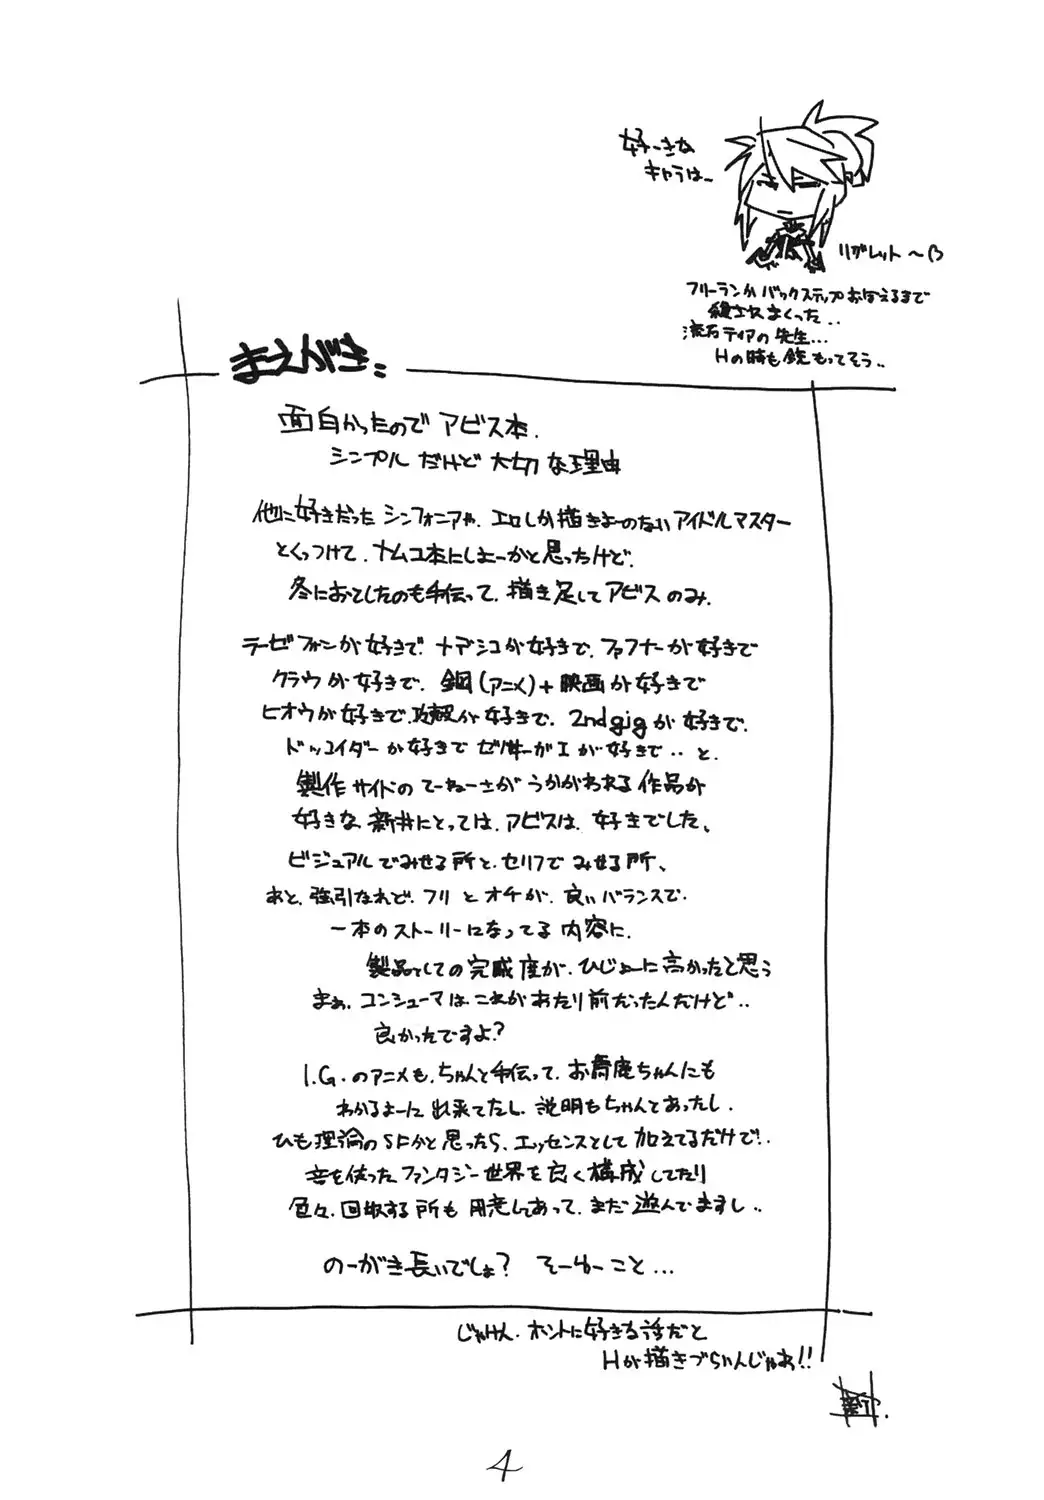 好ーきな
キャラはー
リグレット〜β
フリーランか バックステップおぼえるまで
殺されまくった‥
流石ティアの先生…
Hの時も銃もってそう‥
まえがき:
面白かったので アビス本.
シンプル だけど 大切な理由
他に好きだった シンフォニアや、エロしか描きよーのない アイドルマスター
とくっつけて、ナムコ本にしよーかと思ったけど、
冬におとしたのも手伝って、描き足して アビス のみ、
ラーゼフォンが好きで、ナデシコが好きで、ファフナーが好きで
クラウが好きで、鋼(アニメ)+映画が好きで
ヒオウが好きで、攻殻が好きで、2ndgigが好きで、
ドッコイダーが好きで ゼノギアスが好きで‥ と、
製作サイドの てーねーさが うかがわれる 作品が
好きな 新井にとっては、アビスは、好きでした、
ビジュアルでみせる所と、セリフで みせる所、
あと、強引なれど、フリ と オチが、良いバランスで、
一本のストーリーになってる 内容に、
製品としての完成度が、ひじょーに高かったと思う
まぁ、コンシューマは これがあたり前だったんだけど‥
良かったですよ?
I.G.のアニメも、ちゃんと手伝って、お舞庵ちゃんにも
わかるよーに 出来てたし、説明もちゃんとあったし、
ひも理論のSFかと思ったら、エッセンスとして 加えてるだけで‥
音を使った ファンタジー世界を良く構成してたり
色々、回収する所も 用意してあって、まだ 遊んでますし‥
のーがき長いでしょ? そーゆーこと…
じゃけん、ホントに好きな話だと
Hが描きづらいんじゃあ!!
4